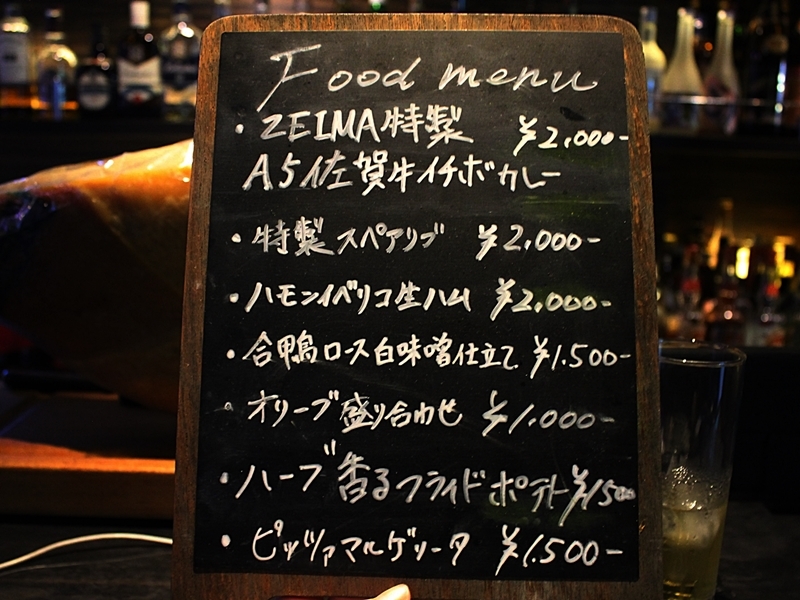 Food menu
・ZEIMA特製 ¥2,000-
A5佐賀牛イチボカレー
・特製スペアリブ ¥2,000-
・ハモンイベリコ生ハム ¥2,000-
・合鴨ロース白味噌仕立て ¥1.500-
・オリーブ盛り合わせ ¥1.000-
・ハーブ香るフライドポテト ¥1500
・ピッツァマルゲリータ ¥1.500-